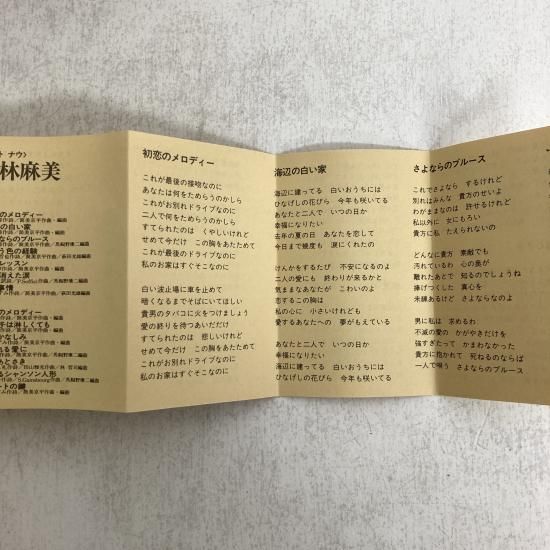 ト ナウ〉
林麻美
のメロディー
の白い家
ならのブルース
う色の経験
レッスン
消えた涙
事情
のメロディー
チは淋しくても
かなしみ
れる愛に
あとさき
るシャンソン人形
ートの鍵
初恋のメロディー
これが最後の接吻なのに
あなたは何をためらうのかしら
これがお別れドライブなのに
二人で何をためらうのかしら
すてられたのは くやしいけれど
せめて今だけ この胸をあたためて
これが最後のドライブなのに
私のお家はすぐそこなのに
白い波止場に車を止めて
暗くなるまでそばにいてほしい
貴男のタバコに火をつけましょう
愛の終りを待つあいだだけ
すてられたのは 悲しいけれど
せめて今だけ この胸をあたためて
これがお別れドライブなのに
私のお家はすぐそこなのに
海辺の白い家
海辺に建ってる 白いおうちには
ひなげしの花びら 今年も咲いてる
あなたと二人で いつの日か
幸福になりたい
去年の夏の日 あなたを恋して
今日まで幾度も 涙にくれたの
けんかをするたび 不安になるのよ
二人の愛にも 終わりが来るかと
気ままなあなたが こわいのよ
恋するこの胸は
私の心に 小さいけれども
愛するあなたへの 夢がもえている
あなたと二人で いつの日か
幸福になりたい
海辺に建ってる 白いおうちには
ひなげしの花びら 今年も咲いてる
さよならのブルース
これでさよなら するけれど
別れはみんな 貴方のせいよ
わがままなのは 許せるけれど
私以外に 女にもろい
貴方に私 たえられないの
どんなに貴方 素敵でも
汚れているわ 心の奥が
離れたあとで 知るのでしょうね
捧げつくした 真心を
未練あるけど さよならなのよ
男に私は 求めるわ
不滅の愛の かがやきだけを
強すぎたって かまわなかった
貴方に抱かれて 死ねるのならば
一人で唄う さよならのブルース